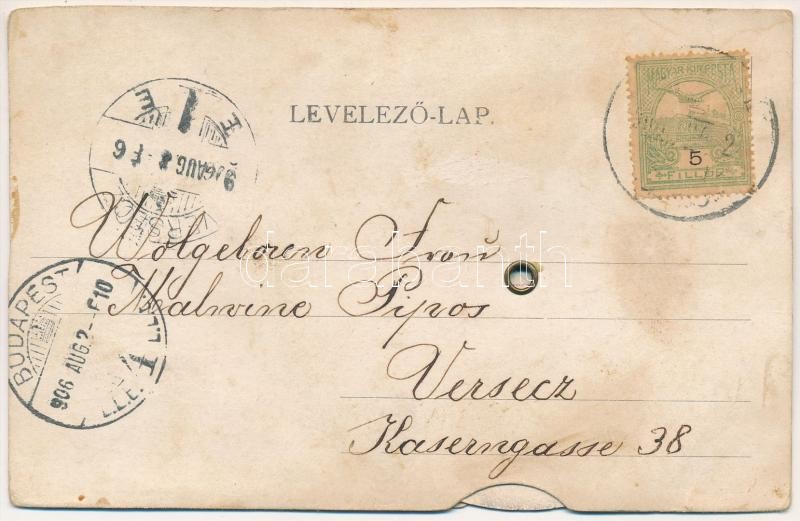 LEVELEZŐ-LAP.
MAGYAR KIR. POSTA
5
FILLÉR
906 AUG 3 - F 6
Wolgeboren Frau
Malwine Pipos
Versecz
Kaserngasse 38
BUDAPEST
906 AUG. 2 - F10
darabanth